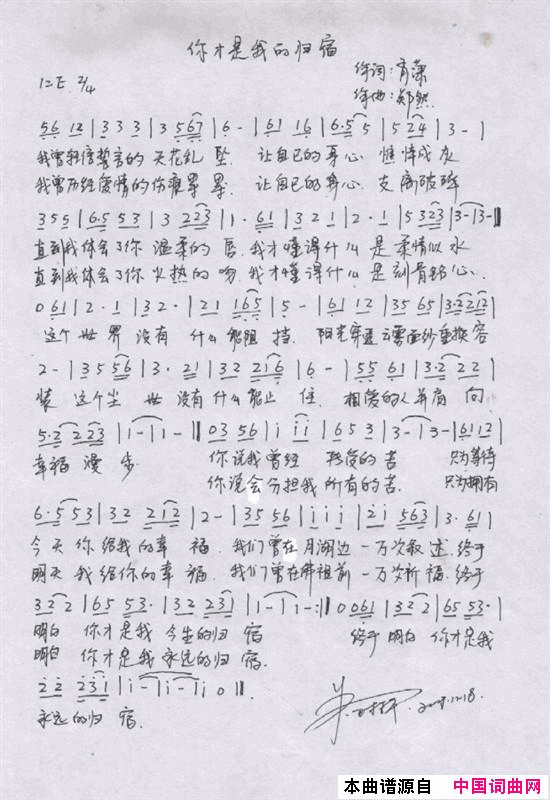 你才是我的归宿
作词:育藻
作曲:郑然
1=E 2/4
56 12 | 3 3 3 | 3 567 | 6 - | 61 16 | 6·5 5 | 5 24 | 3 - |
我曾轻信誓言的天花乱坠. 让自己的身心憔悴成灰
我曾历经爱情的伤痕累累. 让自己的身心支离破碎
355 | 6·5 53 | 3 223 | 1· 61 | 3 2 1 | 2· 1 | 5 323 | 3 - | 3 - ‖
直到我体会了你温柔的唇.我才懂得什么是柔情似水
直到我体会了你火热的吻.我才懂得什么是刻骨铭心.
0 61 | 2· 1 | 3 2· | 21 165 | 5 - | 61 12 | 35 65 | 3·2 212 |
这个世界没有什么能阻挡. 阳光穿透云雾面纱重换容
2 - | 35 56 | 3· 21 | 32 216 | 6 - | 55 61 | 3·2 22 |
装 这个尘世没有什么能止住. 相爱的人并肩向
5·2 223 | 1 - | 1 - ‖ 03 56 | i i i | 6 5 3 | 3 - | 3 - | 61 12 |
幸福漫步. 你说我曾经 的苦 只为等待
你说会分担我所有的苦. 只为拥有
6·5 53 | 32 212 | 2 - | 35 56 | i i i | 2i 563 | 3· 61 |
今天你给我的幸福.我们曾在月湖边一万次叙述.终于
明天我给你的幸福.我们曾在佛祖前一万次祈福.终于
32 2 | 65 53· | 32 231 | 1 - | 1 - :‖ 0 061 | 32 2 | 65 53· |
明白 你才是我今生的归宿 终于明白 你才是我
明白 你才是我永远的归宿.
2 2 231 | i - | i - | i 0 ‖
永远的归宿.
本曲谱源自 中国词曲网